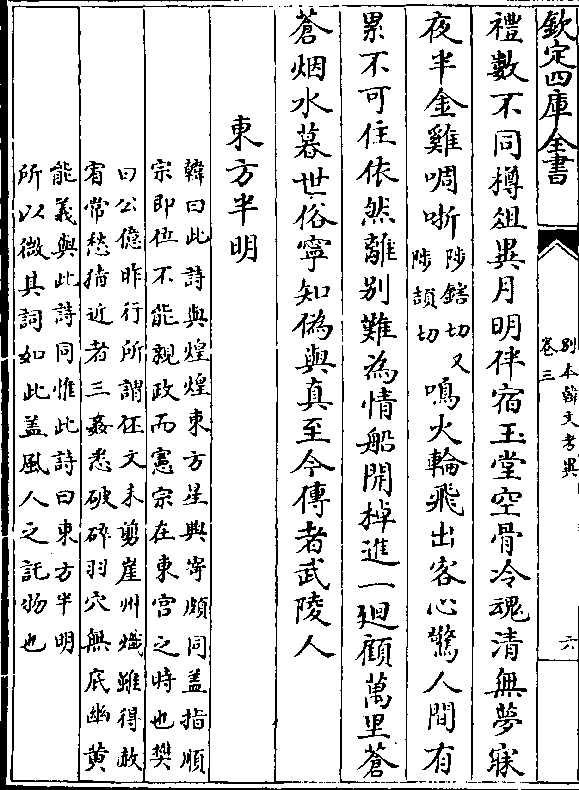 欽定四庫全書
別本韓文考異
卷三
六
禮數不同樽俎異月明伴宿玉堂空骨冷魂清無夢寐
夜半金雞啁哳陟鎋切又
陟頡切鳴火輪飛出客心驚人間有
累不可住依然離別難為情船開棹進一廻顧萬里蒼
蒼烟水暮世俗寧知偽與真至今傳者武陵人
東方半明
韓曰此詩與煌煌東方星興寄頗同盖指順
宗即位不能親政而憲宗在東宫之時也樊
曰公憶昨行所謂伾文未剪崖州熾雖得赦
宥常愁猜近者三姦悉破碎羽穴無底幽黄
能義與此詩同惟此詩曰東方半明
所以微其詞如此盖風人之託物也